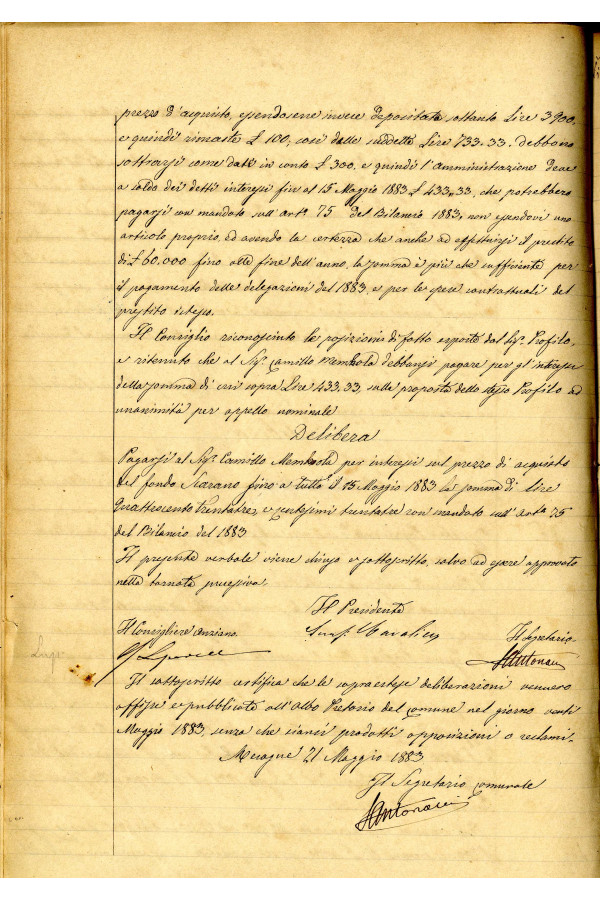 prezzo d'acquisto, essendosene invece depositate soltanto Lire 3900,
e quindi rimaste £ 100, così dalle suddette Lire 733.33. debbono
sottrarsi come dati in conto £ 300, e quindi l'amministrazione deve
a saldo dei detti interessi fino al 15 Maggio 1883 £ 433,33, che potrebbero
pagarsi con mandato sull'arto. 75 del Bilancio 1883, non essendovi uno
articolo proprio, ed avendo la certezza che anche ad effettuirsi il prestito
di £ 60.000 fino alla fine dell'anno, la somma è più che sufficiente per
il pagamento delle delegazioni del 1883, e per le spese contrattuali del
prestito istesso.
Il Consiglio riconosciute le posizioni di fatto esposte dal Sigr. Profilo,
e ritenuto che al Sigr. Camillo Membola debbansi pagare per gl'interessi
della somma di cui sopra Lire 433,33, sulla proposta dello stesso Profilo ad
unanimità per appello nominale
Delibera
Pagarsi al Sigr. Camillo Membola per interessi sul prezzo di acquisto
del fondo Scarano fino a tutto il 15 Maggio 1883 la somma di lire
Quattrocento trentatre, e centesimi trentatre con mandato sull'arto. 75
del Bilancio del 1883
Il presente verbale viene chiuso e sottoscritto, salvo ad essere approvato
nella tornata successiva.
Il Presidente
Il Consigliere Anziano
Il Segretario
Antonaci
Il sottoscritto certifica che le sopraestese deliberazioni vennero
affisse e pubblicate all'Albo Pretorio del Comune nel giorno venti
Maggio 1883, senza che siansi prodotti opposizioni o reclami.
Mesagne 21 Maggio 1883
Il Segretario Comunale
Antonaci